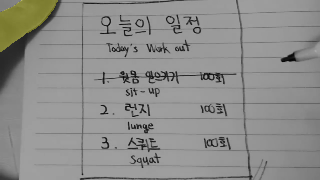 오늘의 일정
Today's Work out
1. 윗몸 일으키기 100회
sit-up
2. 런지 100회
lunge
3. 스쿼트 100회
Squat